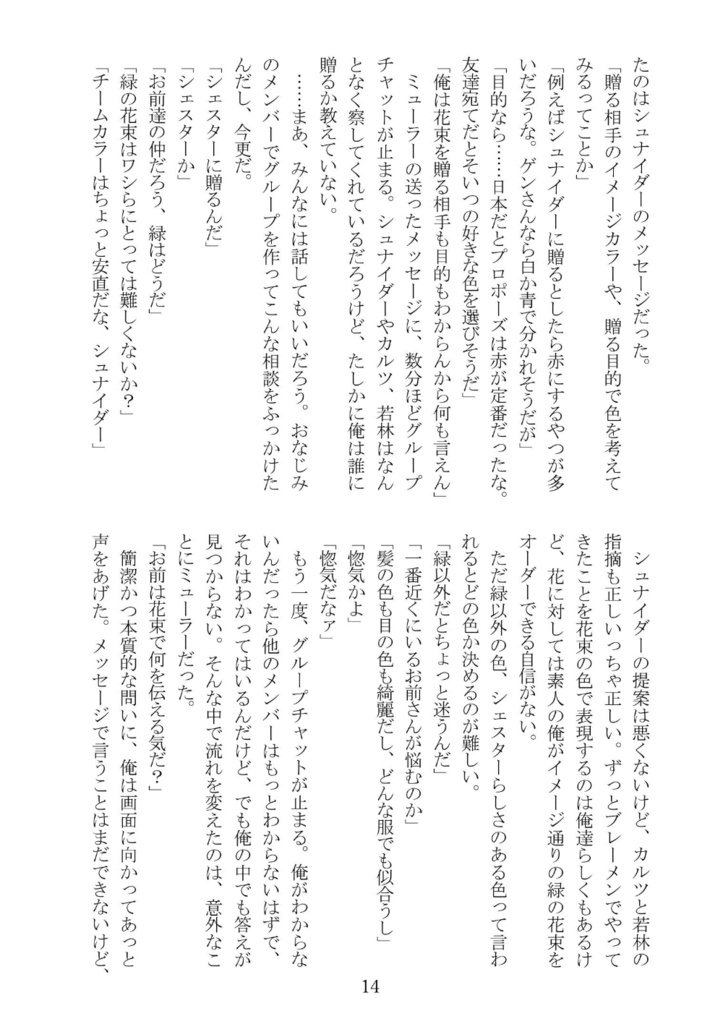 たのはシュナイダーのメッセージだった。
「贈る相手のイメージカラーや、贈る目的で色を考えて
みるってことか」
「例えばシュナイダーに贈るとしたら赤にするやつが多
いだろうな。ゲンさんなら白か青で分かれそうだが」
「目的なら……日本だとプロポーズは赤が定番だったな。
友達宛てだとそいつの好きな色を選びそうだ」
「俺は花束を贈る相手も目的もわからんから何も言えん」
ミューラーの送ったメッセージに、数分ほどグループ
チャットが止まる。シュナイダーやカルツ、若林はなん
となく察してくれているだろうけど、たしかに俺は誰に
贈るか教えていない。
……まあ、みんなには話してもいいだろう。おなじみ
のメンバーでグループを作ってこんな相談をふっかけた
んだし、今更だ。
「シェスターに贈るんだ」
「シェスターか」
「お前達の仲だろう、緑はどうだ」
「緑の花束はワシらにとっては難しくないか？」
「チームカラーはちょっと安直だな、シュナイダー」
シュナイダーの提案は悪くないけど、カルツと若林の
指摘も正しいっちゃ正しい。ずっとブレーメンでやって
きたことを花束の色で表現するのは俺達らしくもあるけ
ど、花に対しては素人の俺がイメージ通りの緑の花束を
オーダーできる自信がない。
ただ緑以外の色、シェスターらしさのある色って言わ
れるとどの色か決めるのが難しい。
「緑以外だとちょっと迷うんだ」
「一番近くにいるお前さんが悩むのか」
「髪の色も目の色も綺麗だし、どんな服でも似合うし」
「惚気かよ」
「惚気だなァ」
もう一度、グループチャットが止まる。俺がわからな
いんだったら他のメンバーはもっとわからないはずで、
それはわかってはいるんだけど、でも俺の中でも答えが
見つからない。そんな中で流れを変えたのは、意外なこ
とにミューラーだった。
「お前は花束で何を伝える気だ？」
簡潔かつ本質的な問いに、俺は画面に向かってあっと
声をあげた。メッセージで言うことはまだできないけど、
14